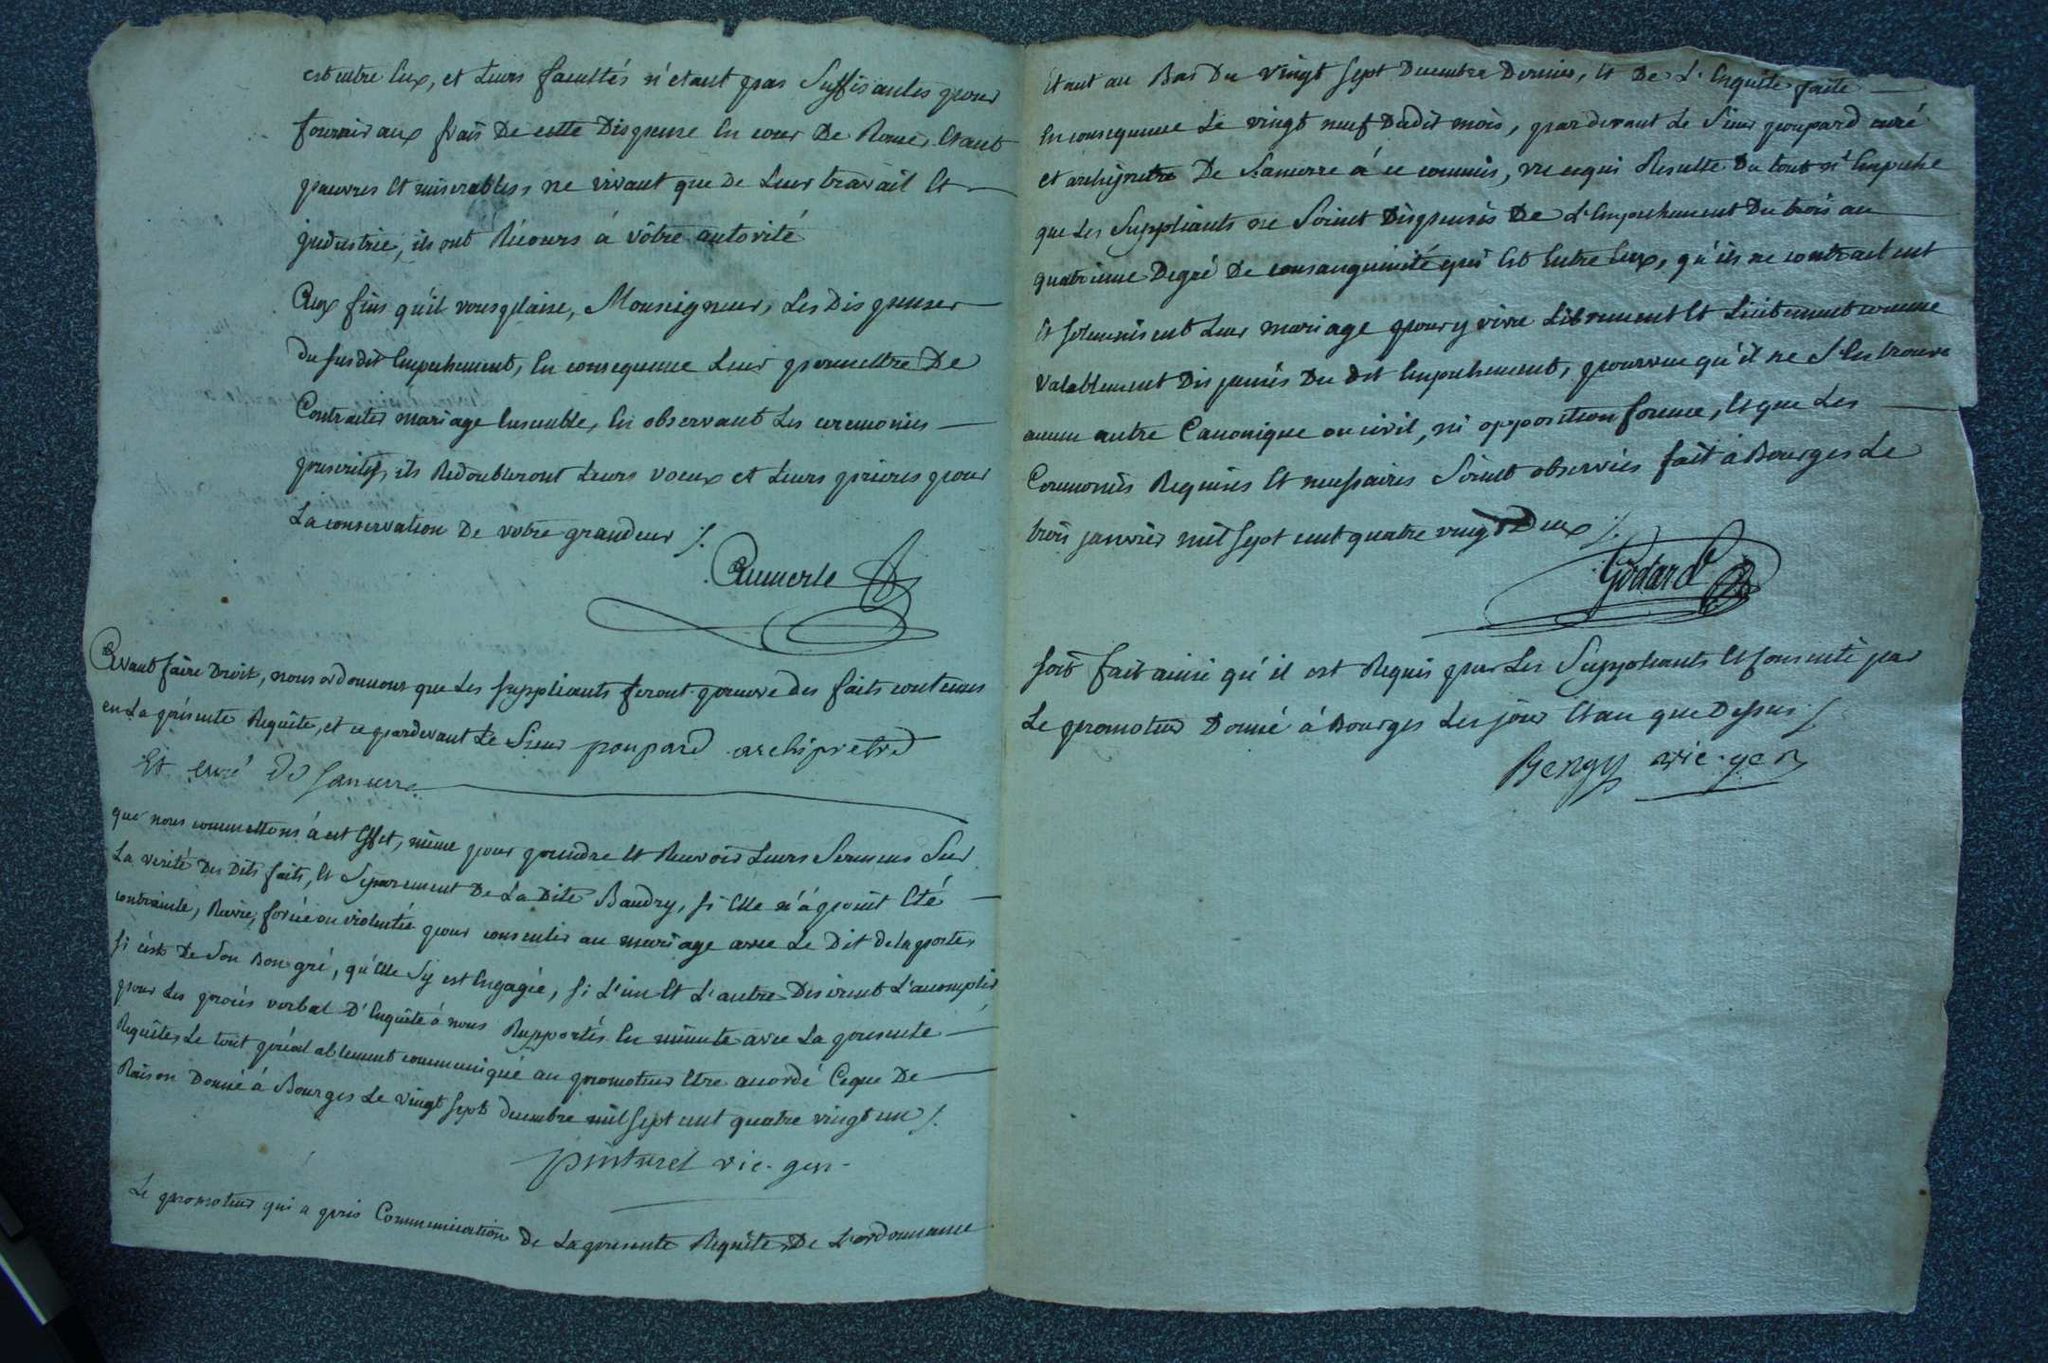 est entre Eux, et Leurs facultés n'étant pas Suffisantes pour
fournir aux frais De cette Dispense En cour De Rome, Etant
pauvres Et miserables, ne vivant que De Leur travail Et
industrie, ils ont Récours à vôtre autorité
Aux fins qu'il vous plaise, Monseigneur, Les Dispenser
Du susdit Empechement, En consequence Leur permettre De
Contracter mariage Ensemble, En observant Les ceremonies
prescrites, ils Redoubleront Leurs voeux et Leurs prieres pour
La conservation De votre grandeur ./.
Aumerle
Avant faire Droit, nous ordonnons que Les suppliants feront preuve des faits contenus
en La présente Requête, et ce pardevant Le Sieur poupard archipretre
Et curé De Sancerre
que nous commettons à cet Effet, même pour prendre Et Recevoir Leurs Sermens Sur
La verité Des Dits faits, Et Separement De La Dite Baudry, si Elle n'a point Eté
contrainte, Ravie, forcée ou violentée pour consentir au mariage avec Le Dit Delaporte,
si c'est De Son Bon gré, qu'Elle s'y est Engagée, si L'un Et L'autre Desirent L'acomplir
pour Les procés verbal D'Enquête à nous Rapportés En minute avec La presente
Requête, Le tout préalablement communiqué au promoteur Etre acordé Ceque De
Raison Donné à Bourges Le vingt sept decembre mil sept cent quatre vingt un ./.
pinturel vic. gen.
Le promoteur qui a pris Communication De La presente Requête, De L'ordonnance
Etant au Bas Du vingt sept Decembre Dernier, Et De L'Enquête faite
En consequence Le vingt neuf Dudit mois, pardevant Le Sieur poupard curé
et archipretre De Sancerre à ce commis, vu cequi Resulte Du tout n'Empeche
que Les Suppliants ne Soient Dispensés De L'Empechement Du trois au
quatrieme Degré De consanguinité qui Est Entre Eux, qu'ils ne contractent
Et solemnisent Leur mariage pour y vivre Librement Et Licitement comme
valablement Dispensés Du dit Empechement, pourvu qu'il ne s'En trouve
aucun autre Canonique ou civil, ni opposition formée, Et que Les
Ceremonies Requises Et necessaires Soient observées fait à Bourges Le
trois janvier mil sept cent quatre vingt Deux ./.
Godard
soit fait ainsi qu'il est Requis par Les Suppliants Et consenti par
Le promoteur Donné à Bourges Les jour Et an que Dessus ./.
Bengy vic. gen